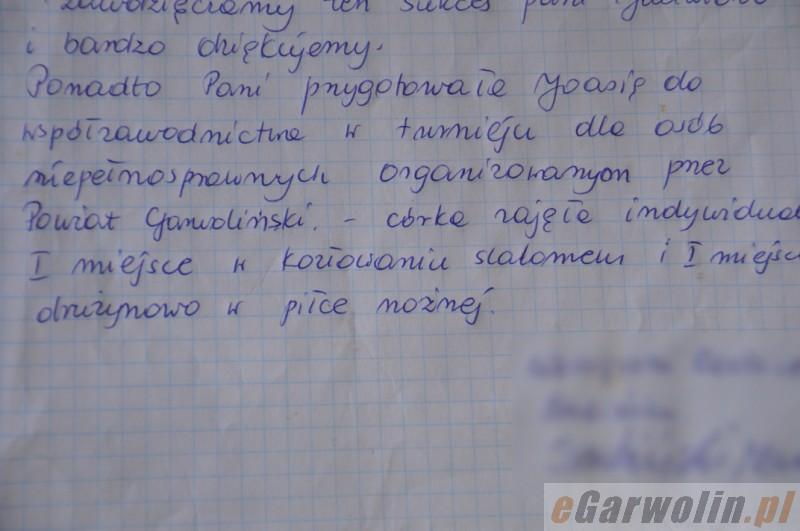 zawdzięczamy ten sukces pani
i bardzo dziękujemy.
Ponadto Pani przygotowała Joasię do
współzawodnictwa w turnieju dla osób
niepełnosprawnych organizowanym przez
Powiat Garwoliński. - córka zajęła indywidual
I miejsce w kozłowaniu slalomem i I miejsc
drużynowo w piłce nożnej.
eGarwolin.pl